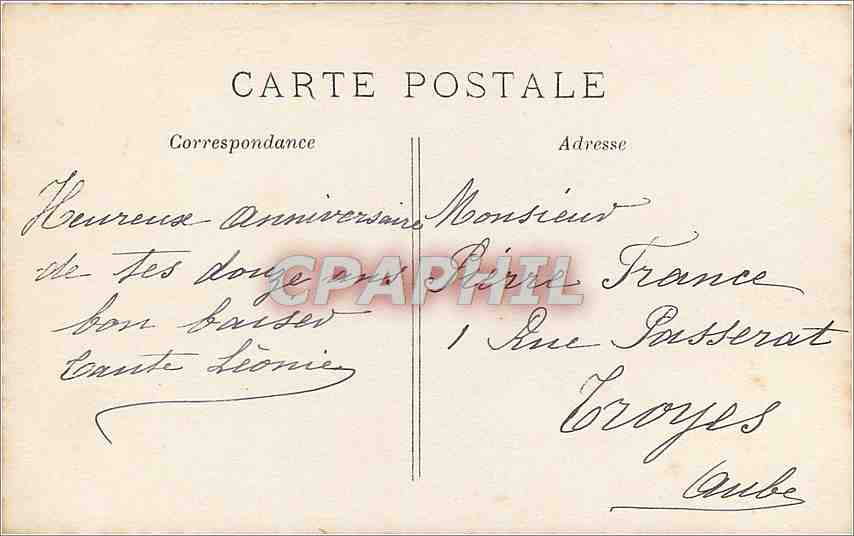 CARTE POSTALE
Correspondance
Heureux anniversaire
de tes douze ans
bon baiser
Tante Léonie
Adresse
Monsieur
Pierre France
1 Rue Passerat
Troyes
Aube
CPAPHIL